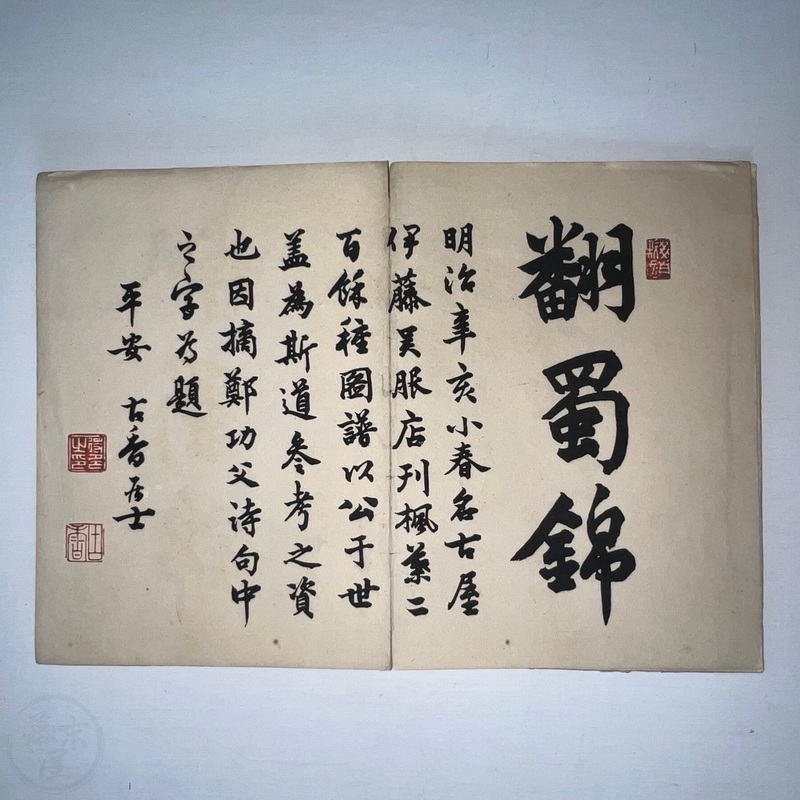 翻蜀錦
明治辛亥小春名古屋
伊藤吴服店刊楓葉二
百餘種圖譜以公于世
蓋為斯道參考之資
也因摘鄭功父詩句中
之字為題
平安 古香居士
古香
幕末屋